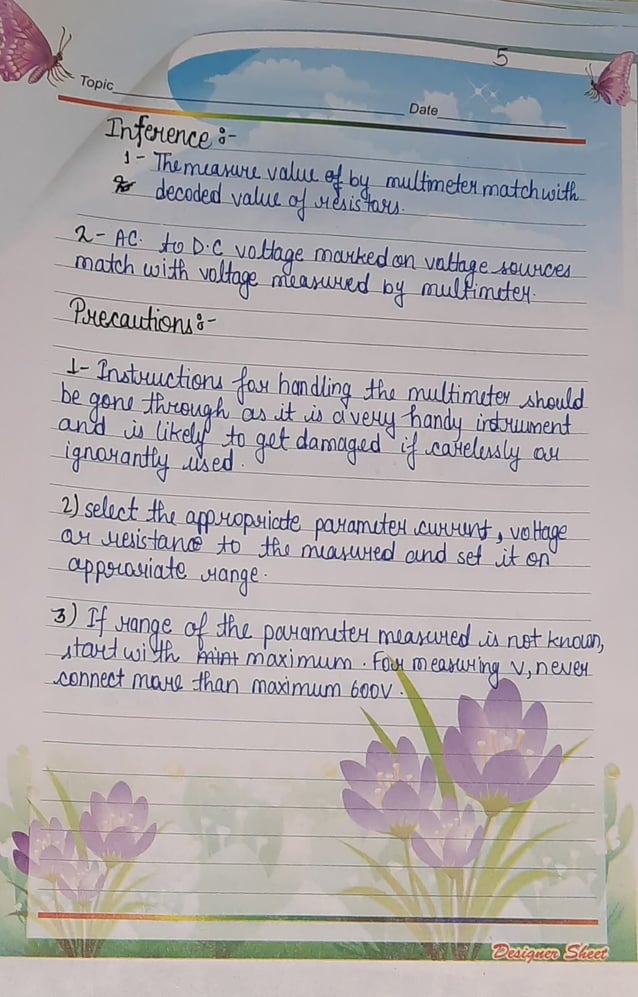 5
Topic
Date
Inference :-
1- The measure value of by multimeter match with
decoded value of resistors.
2- AC. to D.C voltage marked on voltage sources
match with voltage measured by multimeter.
Precautions :-
1- Instructions for handling the multimeter should
be gone through as it is a very handy instrument
and is likely to get damaged if carelessly or
ignorantly used.
2) select the appropriate parameter current, voltage
or resistance to the measured and set it on
approariate range.
3) If range of the parameter measured is not known,
start with maximum. For measuring V, never
connect more than maximum 600V.
Designer Sheet